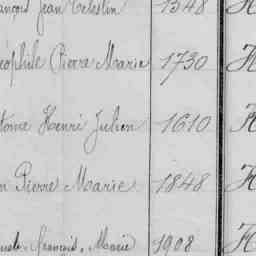 ançois Jean Celestin 1548 H
éophile Pierre Marie 1730 H
toine Henri Julien 1610 H
n Pierre Marie 1848 H
François, Marie 1908 H